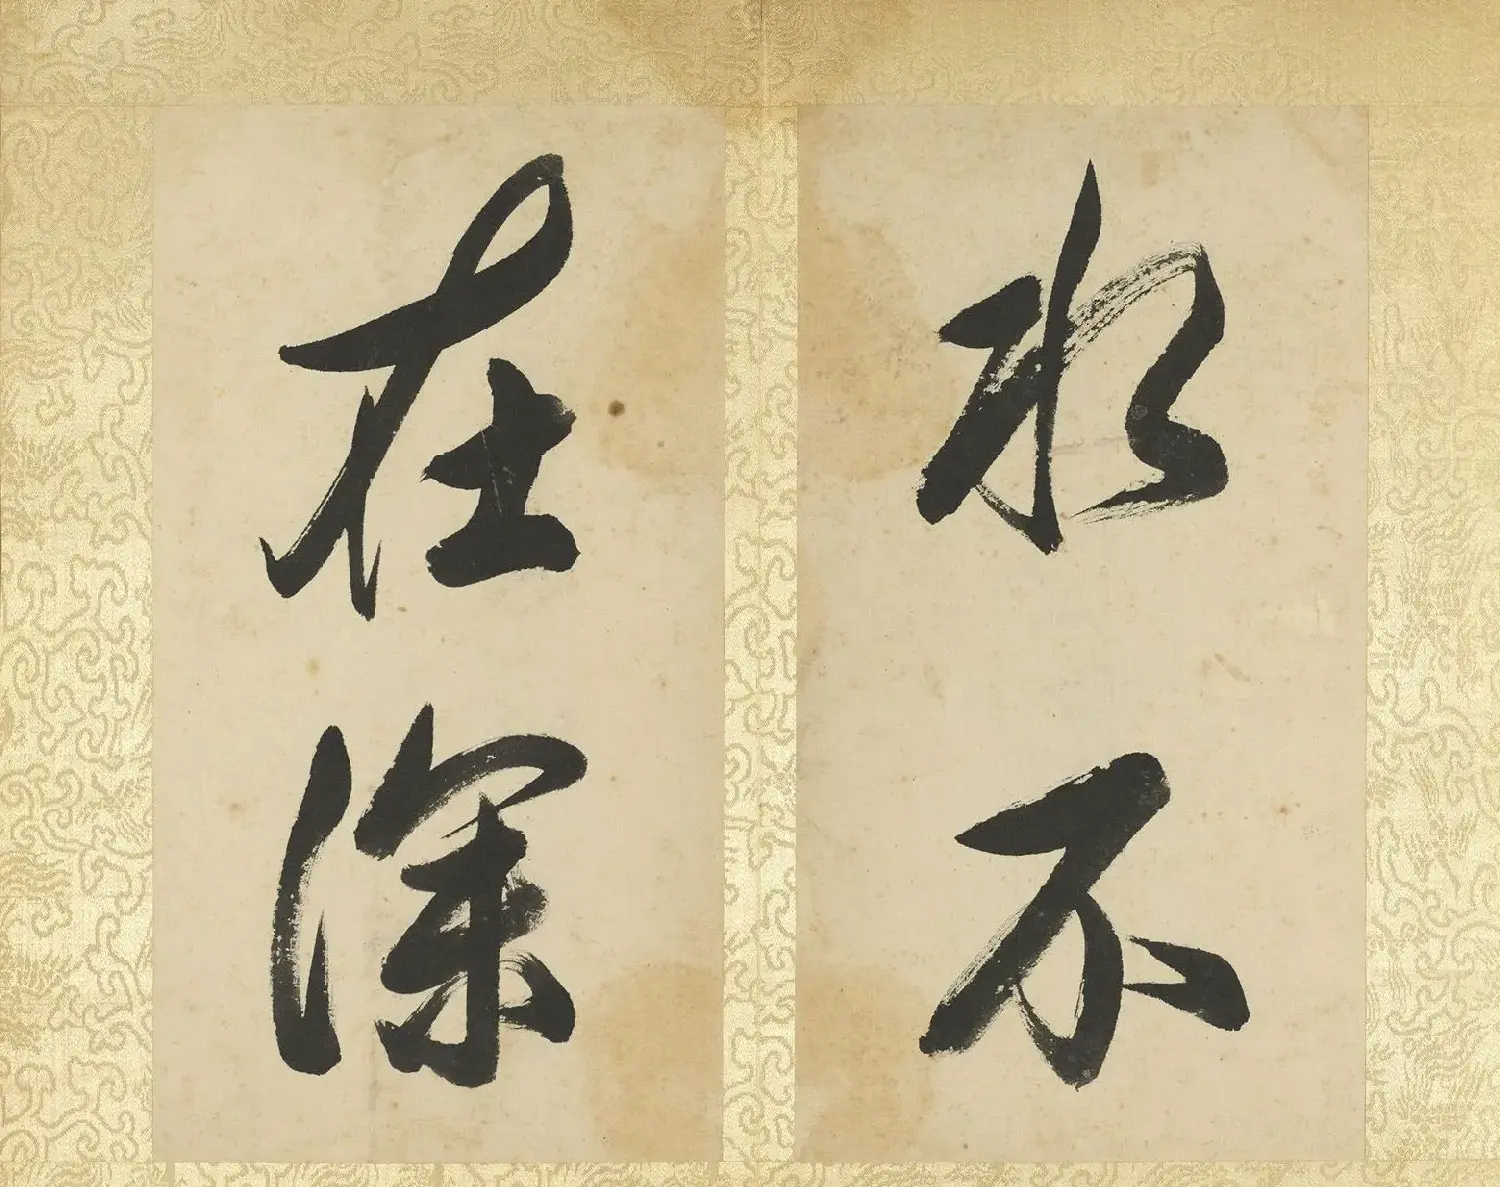 水不
在深